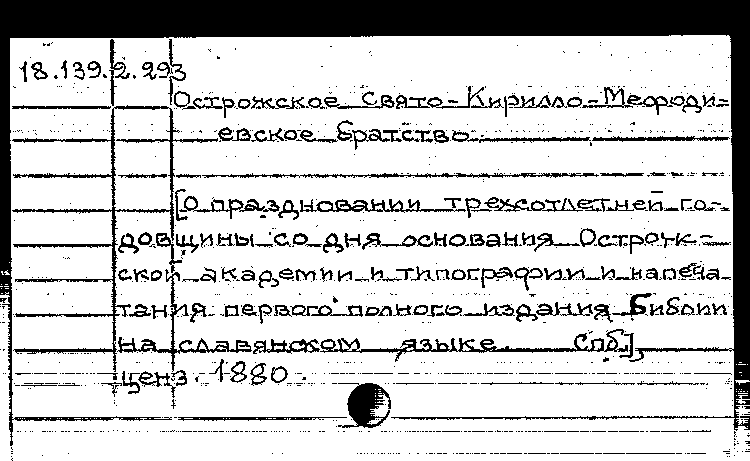 18.139.2.293
Острожское Свято-Кирилло-Мефоди-
евское братство.
[О праздновании трехсотлетней го-
довщины со дня основания Острож-
ской академии и типографии и напеча
тания первого полного издания Библии
на славянском языке. Спб.],
ценз. 1880.